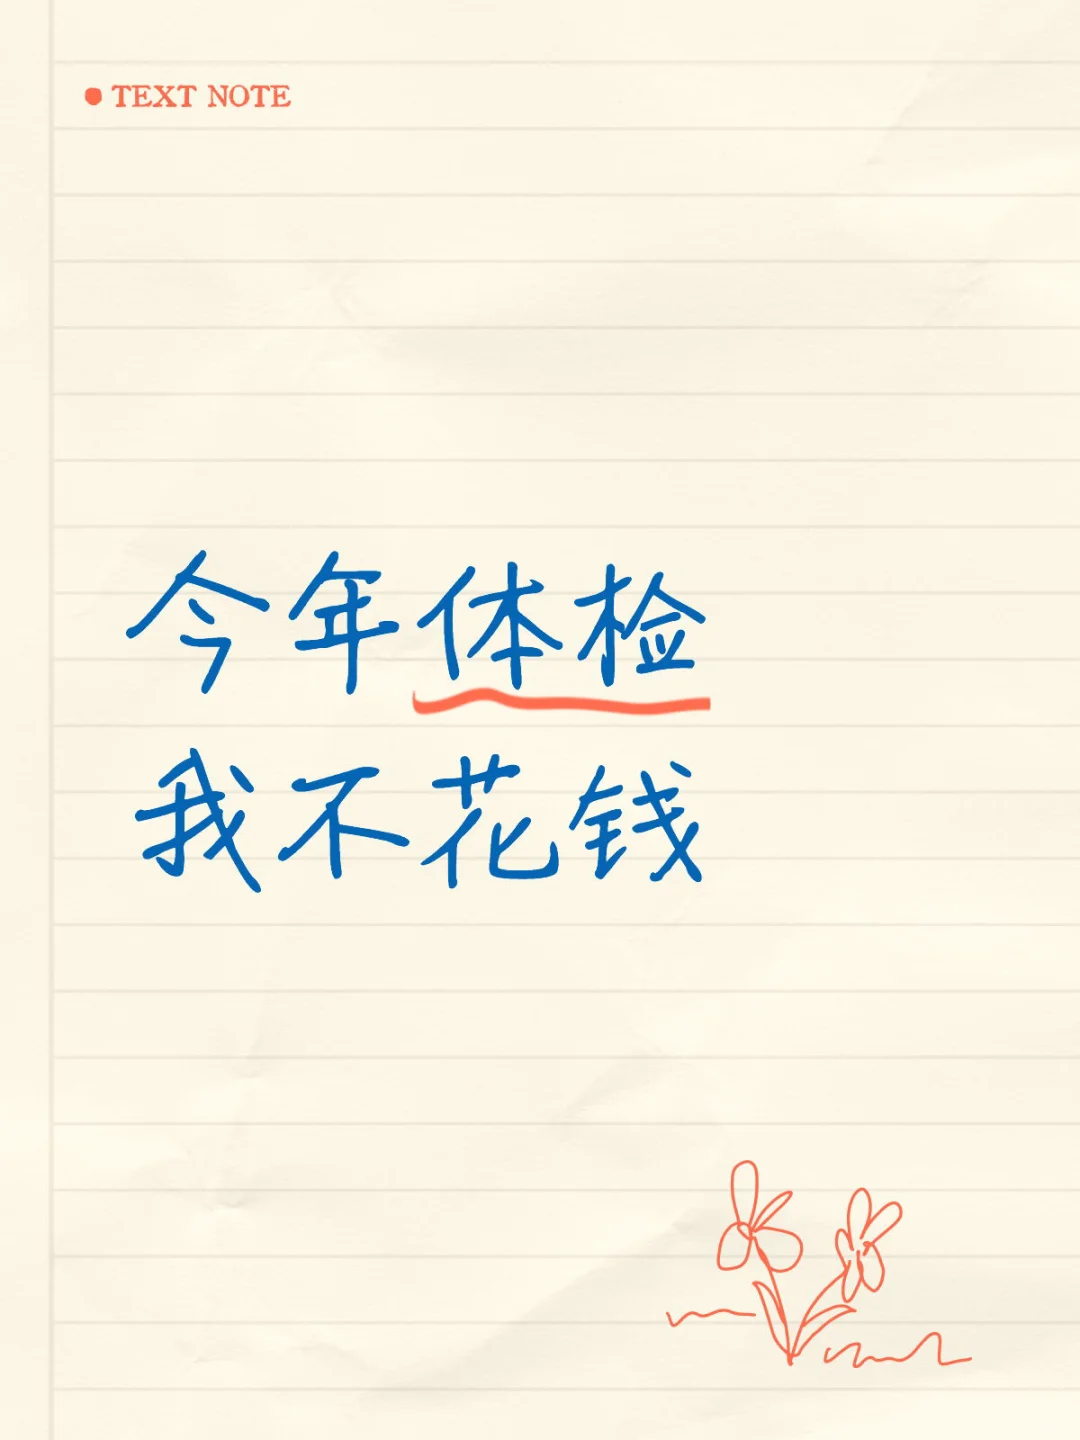 TEXT NOTE
今年体检
我不花钱